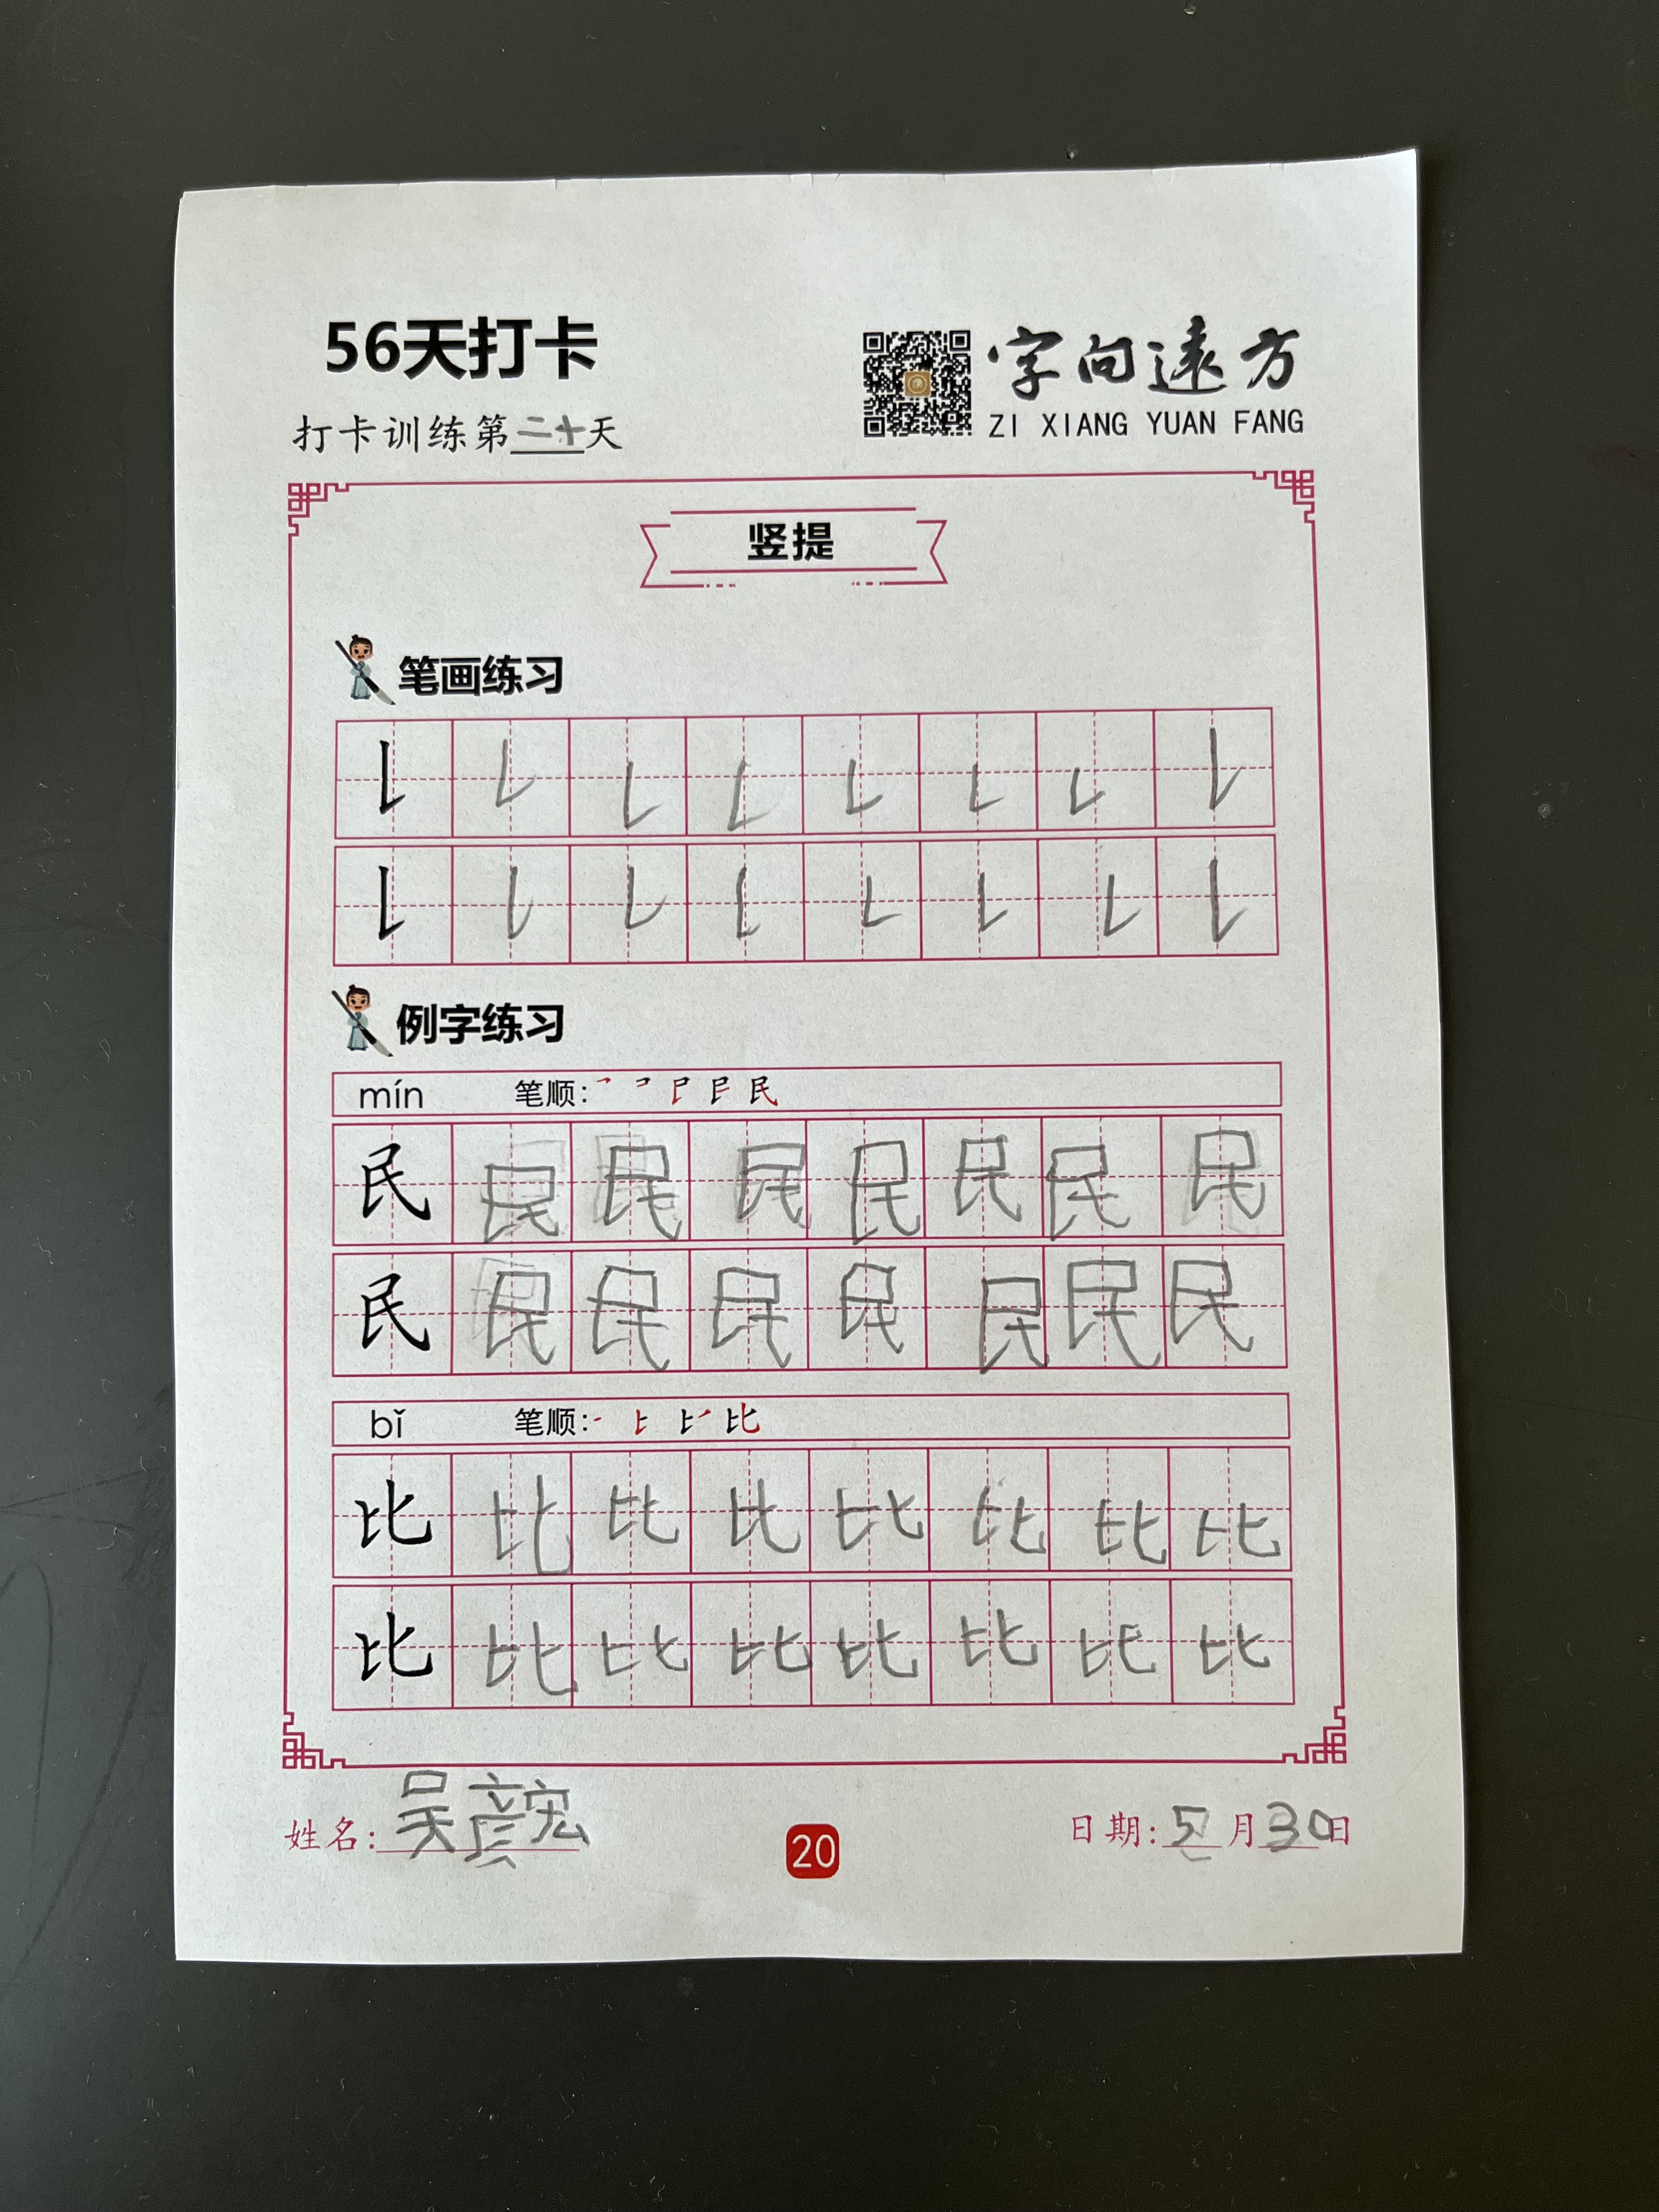 56天打卡
字向遠方
ZI XIANG YUAN FANG
打卡训练第二十天
竖提
笔画练习
例字练习
mín 笔顺:
民 民 民 民 民 民 民 民
民 民 民 民 民 民 民 民
bǐ 笔顺:
比 比 比 比 比 比 比 比
比 比 比 比 比 比 比 比
姓名: 吴彦宏
20
日期: 5月30日